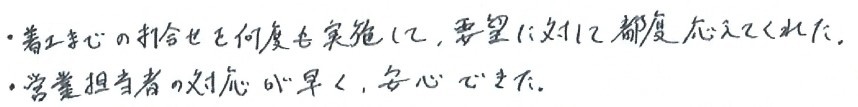 ・着工までの打合せを何度も実施して、要望に対して都度応えてくれた。
・営業担当者の対応が早く、安心できた。